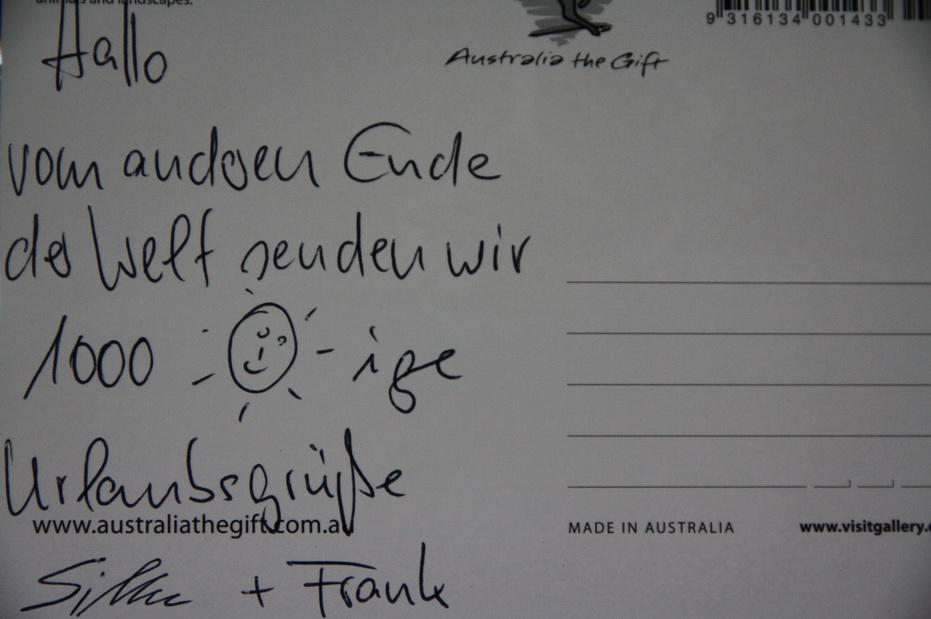 animals and landscapes.
9 316134 001433
Australia the Gift
Hallo
vom anderen Ende
der Welt senden wir
1000 -ige
Urlaubsgrüße
www.australiathegift.com.au
MADE IN AUSTRALIA
www.visitgallery.
Silke + Frank